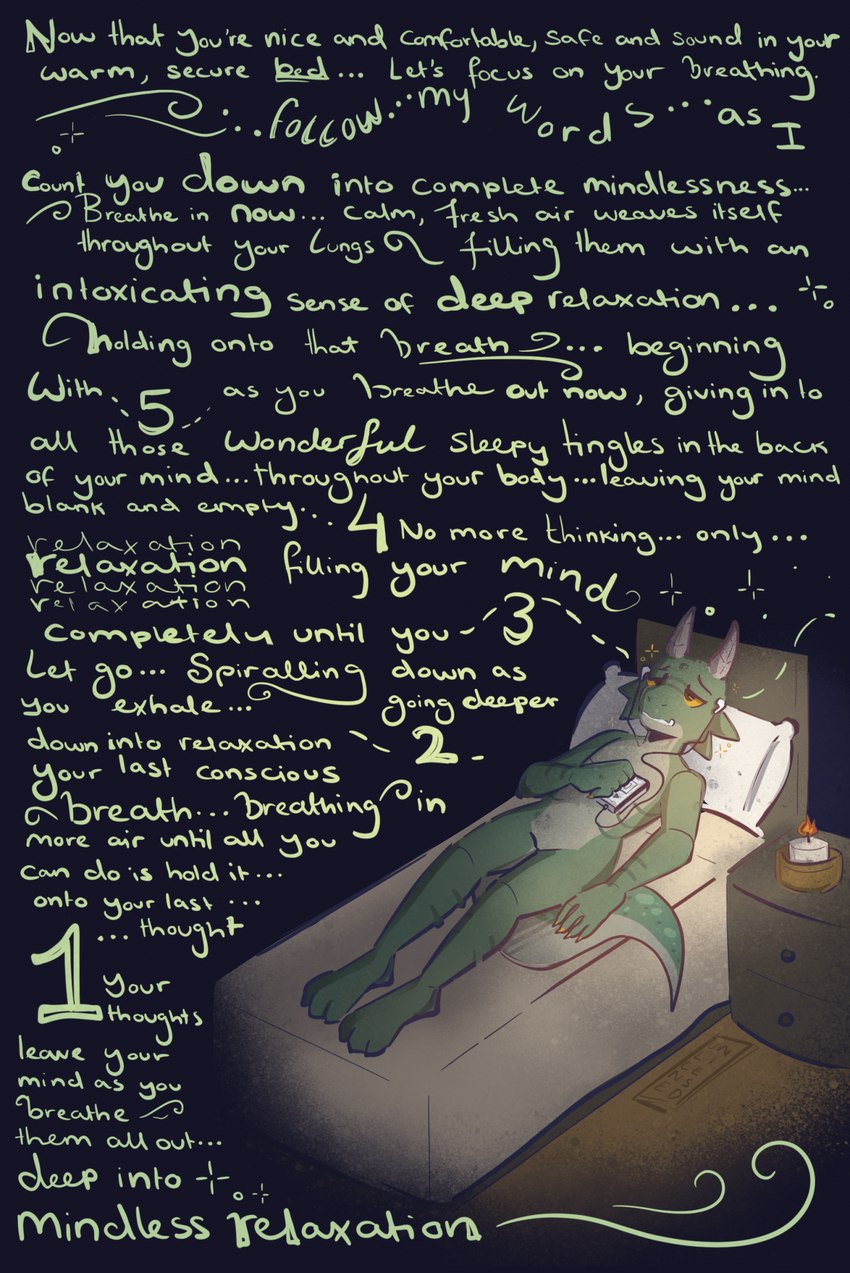 Now that you're nice and comfortable, safe and sound in your
warm, secure bed... Let's focus on your breathing.
...follow...my words...as I
Count you down into complete mindlessness...
Breathe in now... calm, fresh air weaves itself
throughout your lungs filling them with an
intoxicating sense of deep relaxation...
holding onto that breath... beginning
With 5 as you breathe out now, giving in to
all those wonderful sleepy tingles in the back
of your mind...throughout your body...leaving your mind
blank and empty...
4 No more thinking... only...
relaxation
relaxation filling your mind
relaxation
relaxation
completely until you 3
Let go... Spiralling down as
you exhale... going deeper
down into relaxation 2
your last conscious
breath... Breathing in
more air until all you
can do is hold it...
onto your last...
...thought
1 Your
thoughts
leave your
mind as you
breathe
them all out...
deep into
mindless relaxation